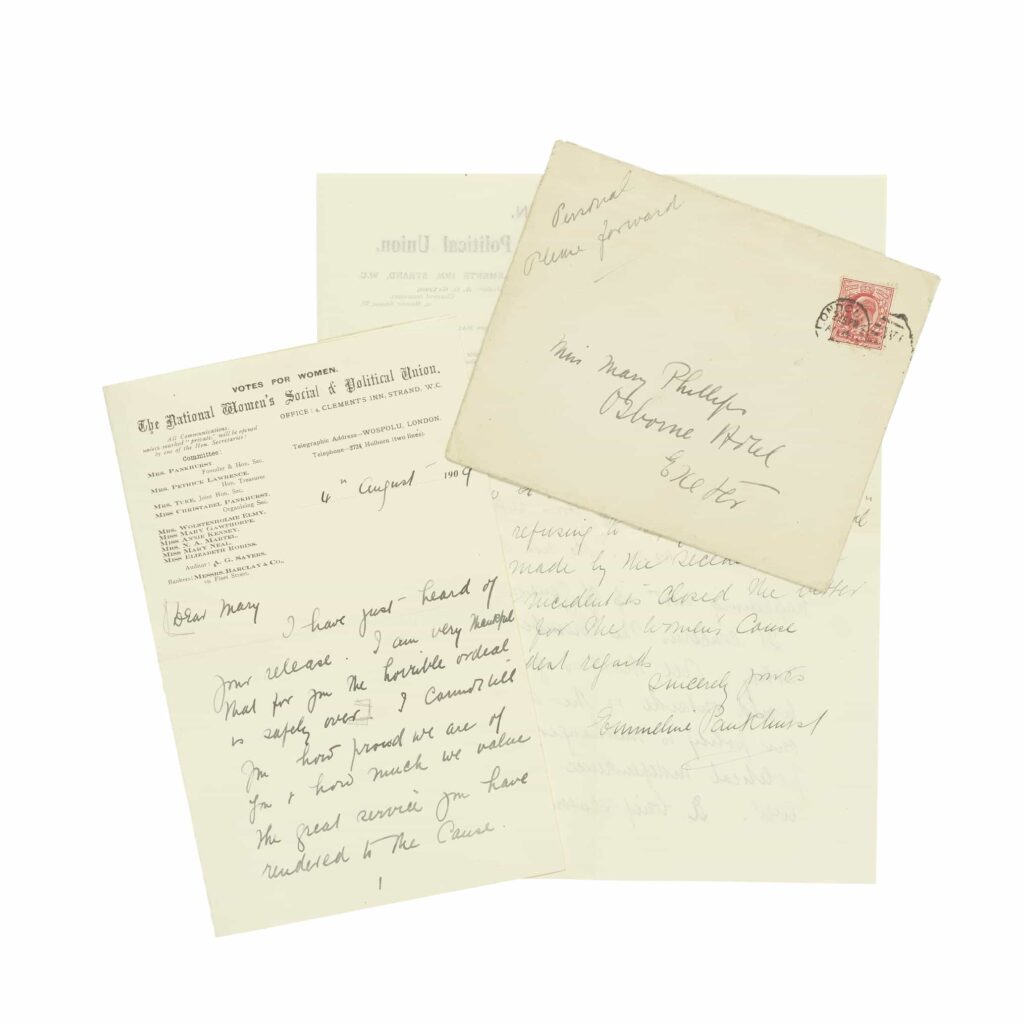 VOTES FOR WOMEN.
The National Women's Social & Political Union.
OFFICE: 4, CLEMENT'S INN, STRAND, W.C.
All Communications,
unless marked "private," will be opened
by one of the Hon. Secretaries:
Telegraphic Address—WOSPOLU, LONDON.
Telephone—2724 Holborn (two lines).
Committee:
MRS. PANKHURST,
Founder & Hon. Sec.
MRS. PETHICK LAWRENCE,
Hon. Treasurer
MRS. TUKE, Joint Hon. Sec.
MISS CHRISTABEL PANKHURST,
Organising Sec.
MRS. WOLSTENHOLME ELMY.
MISS MARY GAWTHORPE.
MISS ANNIE KENNEY.
MRS. N. A. MARTEL.
MISS MARY NEAL.
MISS ELIZABETH ROBINS.
Auditor: A. G. SAYERS.
Bankers: MESSRS. BARCLAY & Co.,
19 Fleet Street.
4th August 1909
Dear Mary
I have just heard of
your release. I am very thankful
that for you the horrible ordeal
is safely over. I cannot tell
you how proud we are of
you & how much we value
the great service you have
rendered to the Cause.
1
Personal
Please forward
Miss Mary Phillips
Osborne Hotel
Exeter
LONDON
refusing to
made by the
incident is closed the better
for the women's Cause
regards
Sincerely yours
Emmeline Pankhurst
Political Union.